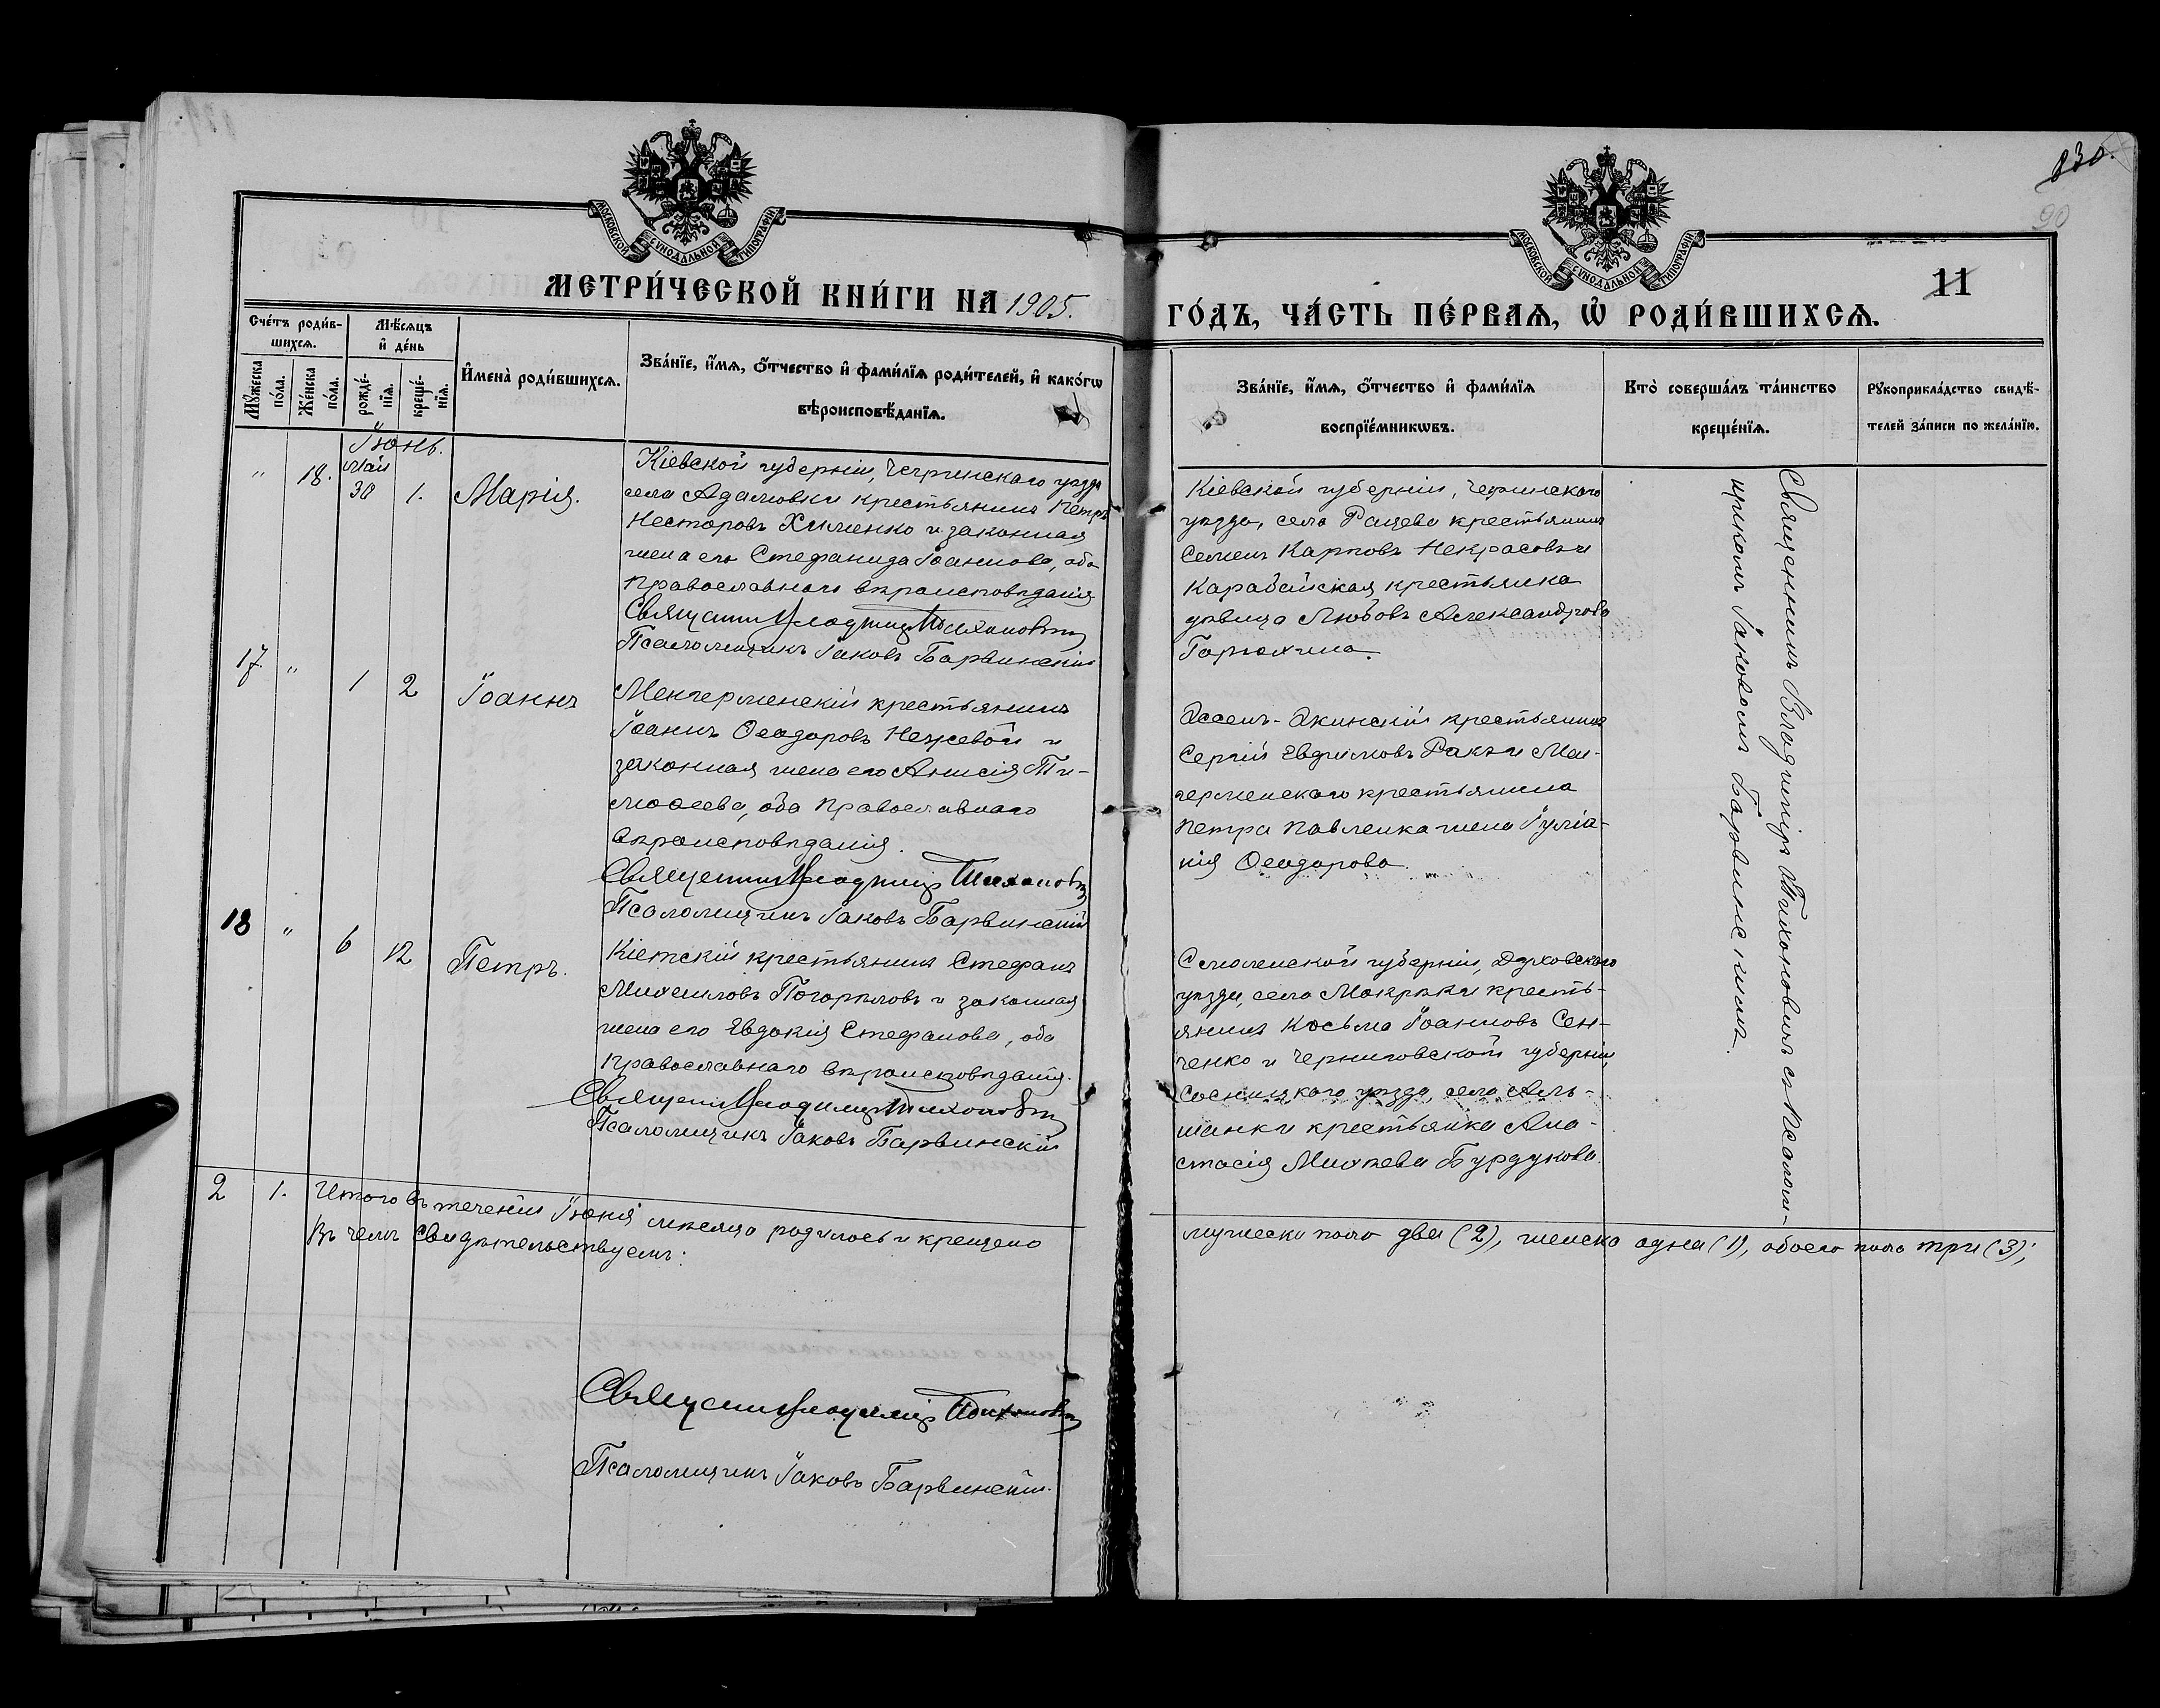 830.
90
11
МОСКОВСКОЙ СѴНОДАЛЬНОЙ ТИПОГРАФІИ
МОСКОВСКОЙ СѴНОДАЛЬНОЙ ТИПОГРАФІИ
МЕТРИ́ЧЕСКОЙ КНИ́ГИ НА 1905.
ГО́ДЪ, ЧА́СТЬ ПЕ́РВАѦ, Ѡ҆ РОДИ́ВШИХСѦ.
Сче́тъ роди́в-
шихсѧ.
Мѣ́сѧцъ
и҆ де́нь
Мꙋ́жеска
по́ла.
Же́нска
по́ла.
рожде́-
нїѧ.
креще́-
нїѧ.
И҆мена̀ роди́вшихсѧ.
Зва́нїе, и҆́мѧ, ѻ҆́тчество и҆ фами́лїѧ роди́телей, и҆ како́гѡ
вѣроисповѣ́данїѧ.
Зва́нїе, и҆́мѧ, ѻ҆́тчество и҆ фами́лїѧ
воспрїе́мникѡвъ.
Кто̀ соверша́лъ та́инство
креще́нїѧ.
Рꙋкоприкла́дство свидѣ́-
телей за́писи по жела́нїю.
Іюнь.
" 18. Май 30 1. Марія.
Кіевской губерніи, Чегринскаго уѣзда
села Адамовки крестьянинъ Петръ
Несторовъ Хименко и законная
жена его Стефанида Іоаннова, оба
православнаго вѣроисповѣданія
Священникъ Владиміръ Тихоновичъ
Псаломщикъ Іаковъ Барвинскій
Кіевской губерніи, Чегринскаго
уѣзда, села Рацева крестьянинъ
Семенъ Карповъ Некрасовъ и
Карабайская крестьянка
дѣвица Любовь Александрова
17. " 1 2 Іоаннъ
Менгерменскій крестьянинъ
Іоаннъ Ѳеодоровъ Нежевой и
законная жена его Анисія Ти-
моѳеева, оба православнаго
вѣроисповѣданія.
Священникъ Владиміръ Тихоновичъ
Псаломщикъ Іаковъ Барвинскій
крестьянинъ
Сергій Евдимовъ Ракъ и Мен-
герменскаго крестьянина
Петра Павленка жена Іуліа-
нія Ѳеодорова.
18 " 6 12 Петръ.
Кіетскій крестьянинъ Стефанъ
Михаиловъ Погорѣловъ и законная
жена его Евдокія Стефанова, оба
православнаго вѣроисповѣданія.
Священникъ Владиміръ Тихоновичъ
Псаломщикъ Іаковъ Барвинскій
Смоленской губерніи, Духовскаго
уѣзда, села Мокряки кресть-
янинъ Косьма Іоанновъ Сен-
ченко и Черниговской губерніи,
Сосницкаго уѣзда, села Аль-
шанки крестьянка Ана-
стасія Михѣева Бурдукова.
Священникомъ Владиміромъ Тихоновичемъ съ псалом-
щикомъ Іаковомъ Барвинскимъ.
2 1. Итого въ теченіи Іюня мѣсяца родилось и крещено
мужеска пола два (2), женска одна (1), обоего пола три (3);
Въ чемъ свидѣтельствуемъ:
Священникъ Владиміръ Тихоновичъ
Псаломщикъ Іаковъ Барвинскій.